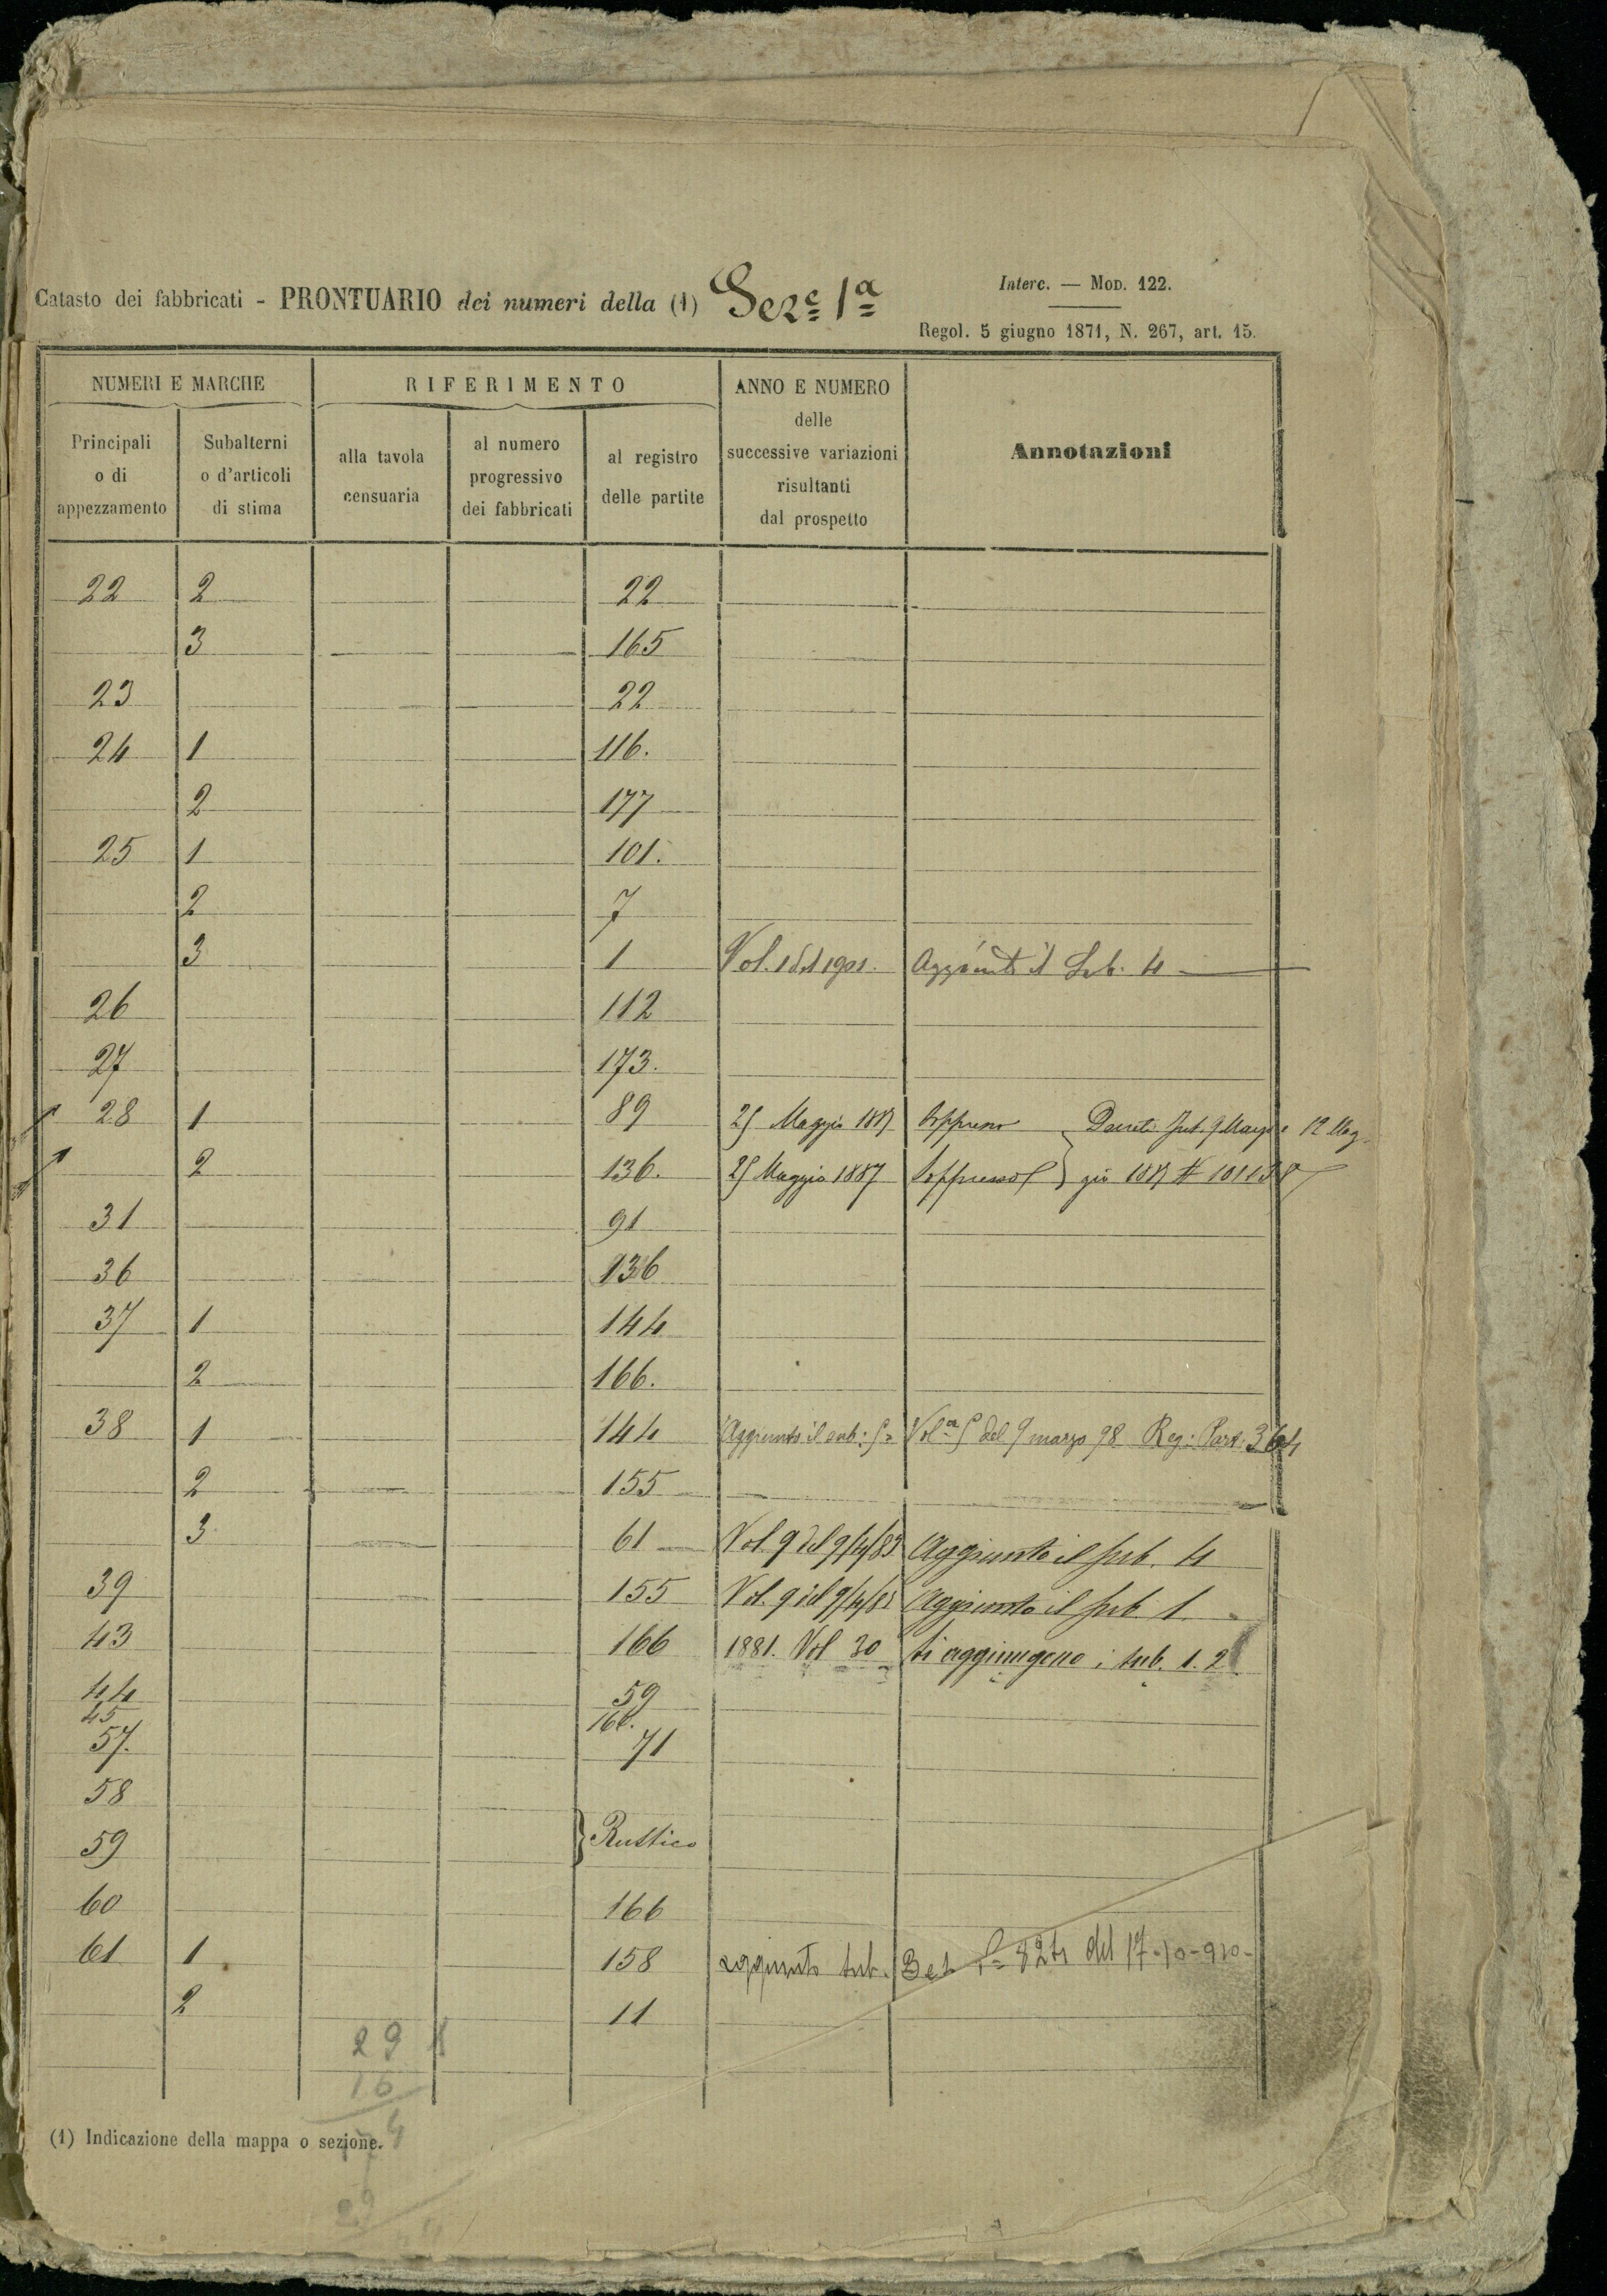 Interc. — Mod. 122.
Catasto dei fabbricati - PRONTUARIO dei numeri della (1) Seze 1a
Regol. 5 giugno 1871, N. 267, art. 15.
NUMERI E MARCHE RIFERIMENTO ANNO E NUMERO delle successive variazioni risultanti dal prospetto Annotazioni
Principali o di appezzamento Subalterni o d'articoli di stima alla tavola censuaria al numero progressivo dei fabbricati al registro delle partite
22 2 22
3 165
23 22
24 1 116.
2 177
25 1 101.
2 7
3 1 Vol. 1 del 1901. Aggiunto il Sub. 4
26 112
27 173.
28 1 89 25 Maggio 1887 Soppresso 12 Mag-
2 136. 25 Maggio 1887 Soppresso gio 1887
31 91
36 136
37 1 144
2 166.
38 1 144 Aggiunto il sub: 5= Vola 5 del 9 marzo 98 Reg: Part: 364
2 155
3 61 Vol. 9 del 9/4/83 Aggiunto il sub. 4
39 155 Vol. 9 del 9/4/83 Aggiunto il sub 1
43 166 1881. Vol 30 Si aggiungono i sub. 1. 2
44 59
45 166.
57. 71
58
59 } Rustico
60 166
61 1 158 aggiunto sub. 3 del 17-10-910-
2 11
29
16
(1) Indicazione della mappa o sezione.